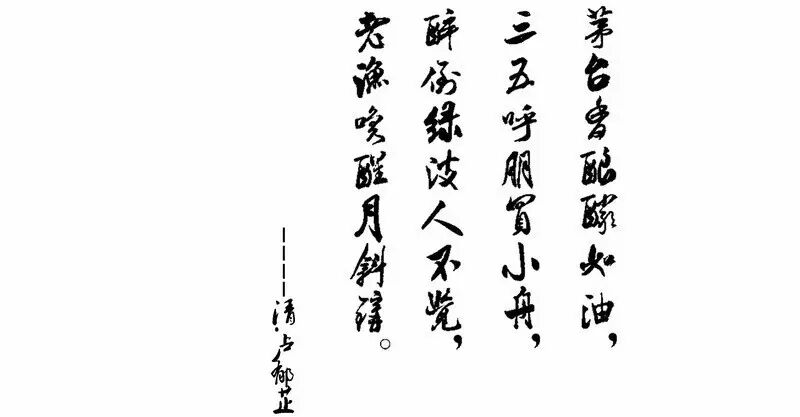 茅台香酿酽如油，
三五呼朋買小舟，
醉倒绿波人不覺，
老漁唤醒月斜鈎。
————清·卢郁芷